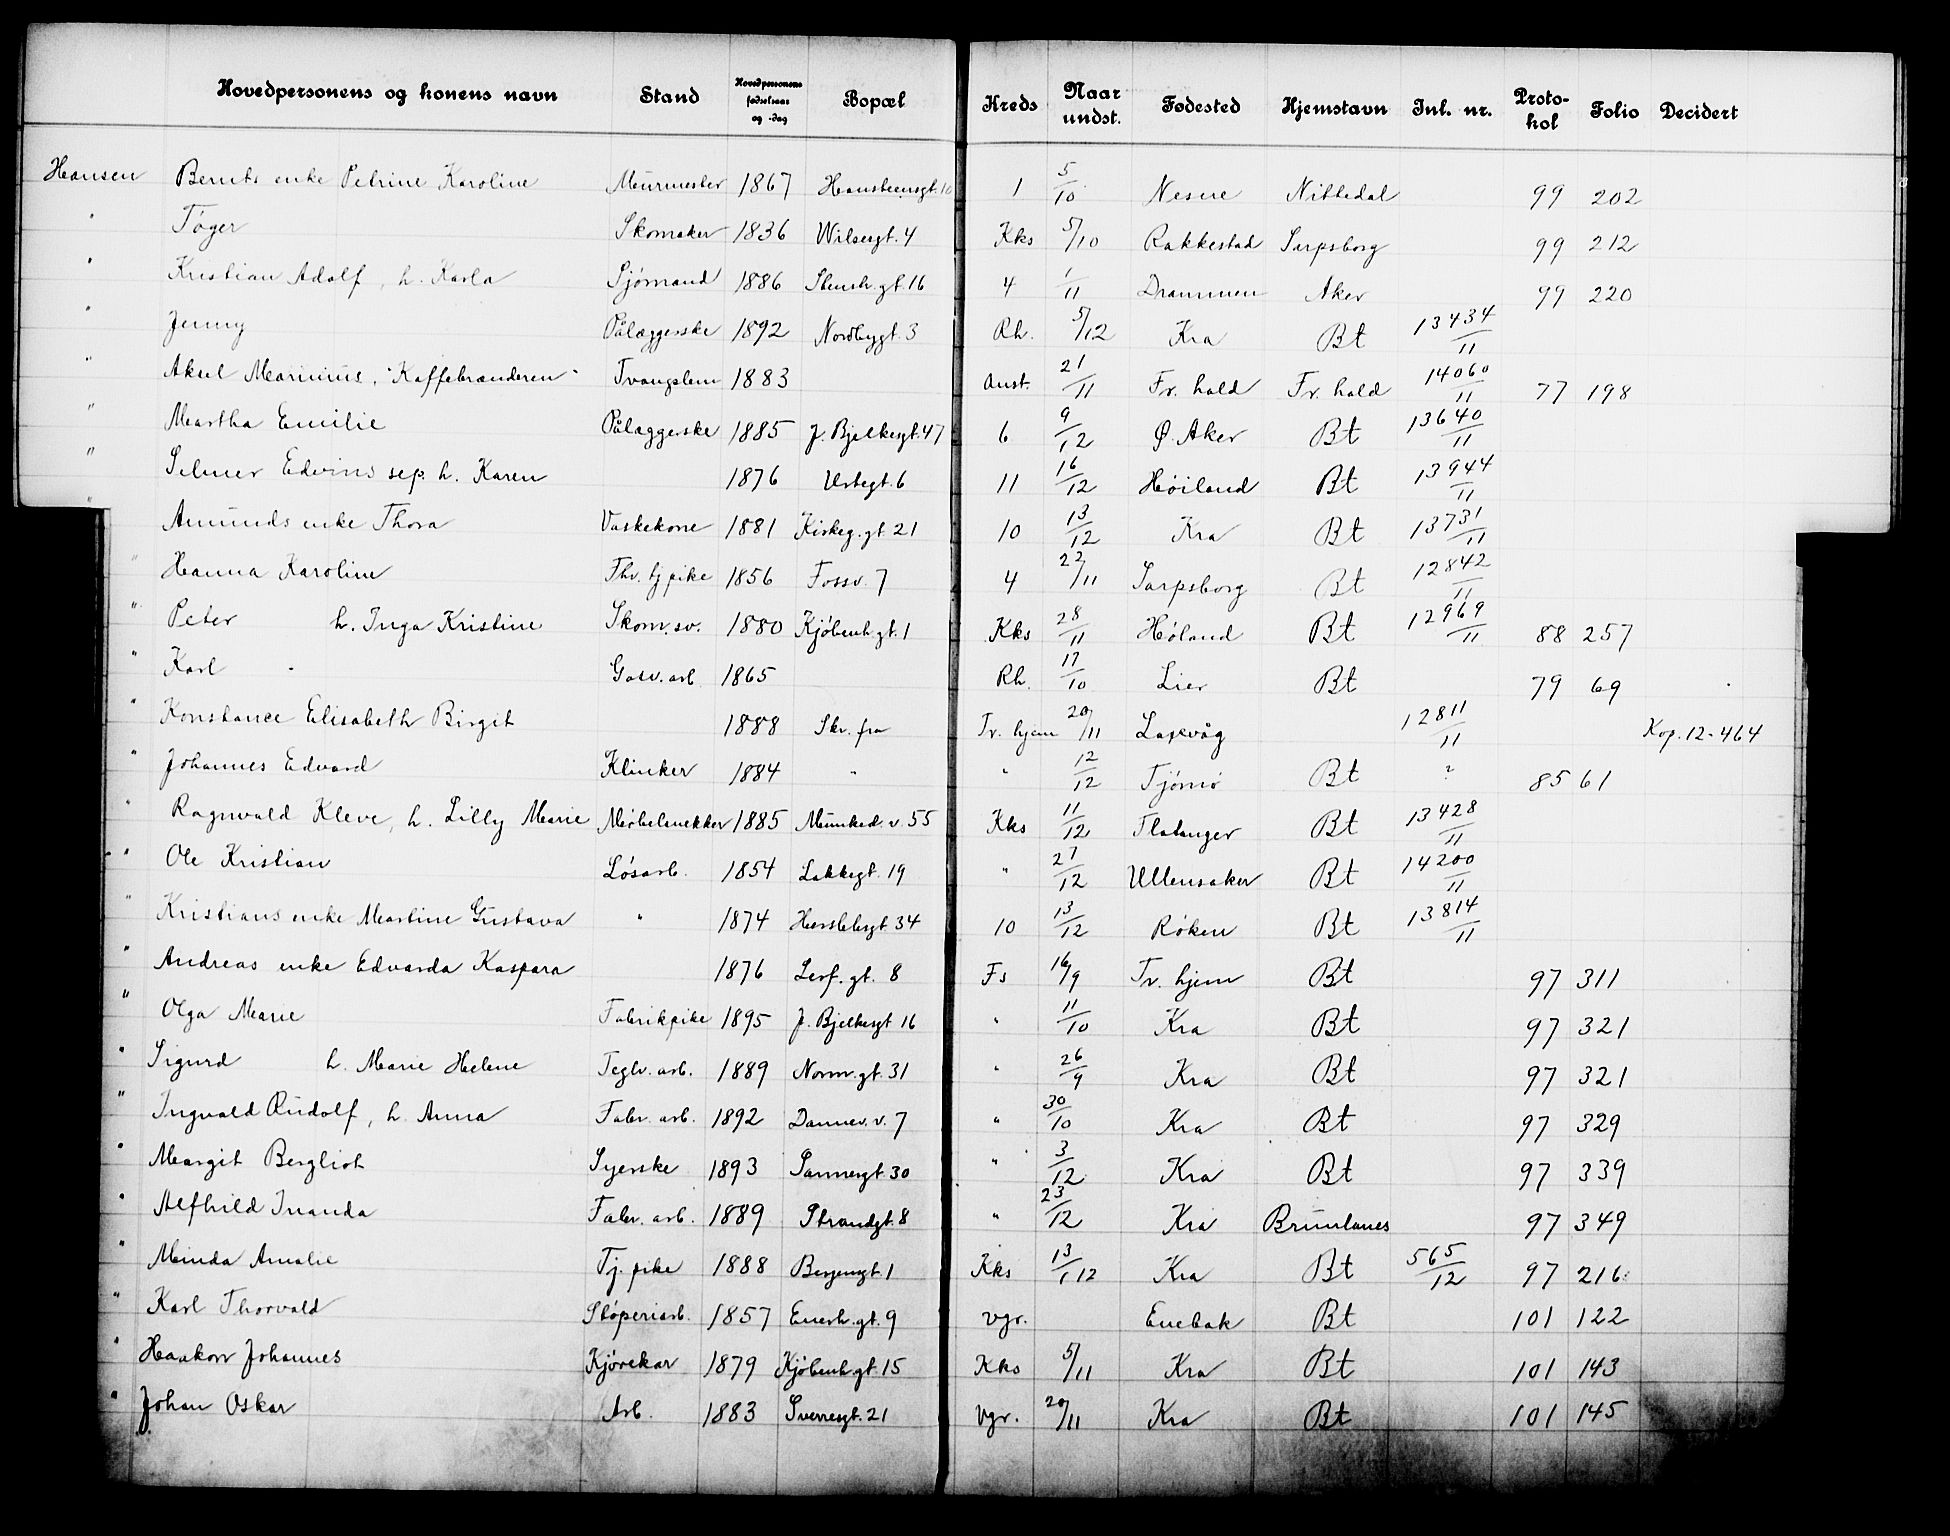 Hovedpersonens og konens navn Stand Hovedpersonens fødselsaar og -dag Bopæl Kreds Naar undst. Fødested Hjemstavn Inl. nr. Protokol Folio Decidert
Hansen Bernts enke Petrine Karoline Murmester 1867 Hansteensgt. 10 1 5/10 Nesne Nittedal 99 202
" Tøger Skomaker 1836 Wilsesgt. 4 Kks 5/10 Rakkestad Sarpsborg 99 212
" Kristian Adolf, h. Karla Sjømand 1886 Stensb. gt. 16 4 1/11 Drammen Aker 99 220
" Jenny Pålæggerske 1892 Nordbygt. 3 Rh. 5/12 Kra Bt 13434/11
" Aksel Marinius, "Kaffebrænderen" Tvangslem 1883 Anst. 21/11 Fr. hald Fr. hald 14060/11 77 198
" Martha Emilie Pålæggerske 1885 J. Bjelkesgt. 47 6 9/12 Ø. Aker Bt 13640/11
" Selmer Edvins sep. h. Karen 1876 Urtegt. 6 11 16/12 Høiland Bt 13944/11
" Amunds enke Thora Vaskekone 1881 Kirkeg. gt. 21 10 13/12 Kra Bt 13731/11
" Hanna Karoline Fhv. tj pike 1856 Fossv. 7 4 22/11 Sarpsborg Bt 12842/11
" Peter h. Inga Kristine Skom. sv. 1880 Kjøbenh. gt. 1 Kks 28/11 Høland Bt 12969/11 88 257
" Karl Gasv. arb. 1865 Rh. 17/10 Lier Bt 79 69
" Konstance Elisabeth Birgit 1888 Skr. fra Tr. hjem 20/11 Laxevåg 12811/11 Kop. 12-464
" Johannes Edvard Klinker 1884 " " 12/12 Tjømø Bt ? 85 61
" Ragnvald Kleve, h. Lilly Marie Møbelsnekker 1885 Munked. v. 55 Kks 11/12 Flatanger Bt 13428/11
" Ole Kristian Løsarb. 1854 Lakkegt. 19 " 27/12 Ullensaker Bt 14200/11
" Kristians enke Martine Gustava " 1874 Herslebsgt 34 10 13/12 Røken Bt 13814/11
" Andreas enke Edvarda Kaspara 1876 Leif. gt. 8 Fs 16/9 Tr. hjem Bt 97 311
" Olga Marie Fabrikpike 1895 J. Bjelkesgt 16 " 11/10 Kra Bt 97 321
" Sigurd h. Marie Helene Teglv. arb. 1889 Norm. gt. 31 " 26/9 Kra Bt 97 321
" Ingvald Rudolf, h. Anna Fabr. arb. 1892 Dannev. v. 7 " 30/10 Kra Bt 97 329
" Margit Bergliot Syerske 1893 Sannergt. 30 " 3/12 Kra Bt 97 339
" Alfhild Inanda Fabr. arb. 1889 Strandgt. 8 " 23/12 Kra Brunlanes 97 349
" Minda Amalie Tj. pike 1888 Bergengt. 1 Kks 13/1 12 Kra Bt 565/12 97 216
" Karl Thorvald Støperiarb. 1857 Enerh. gt. 9 Vgr. Enebak Bt 101 122
" Haakon Johannes Kjørekar 1879 Kjøbenh. gt. 15 Kks 5/11 Kra Bt 101 143
" Johan Oskar Arb. 1883 Sverresgt. 21 Vgr. 20/11 Kra Bt 101 145